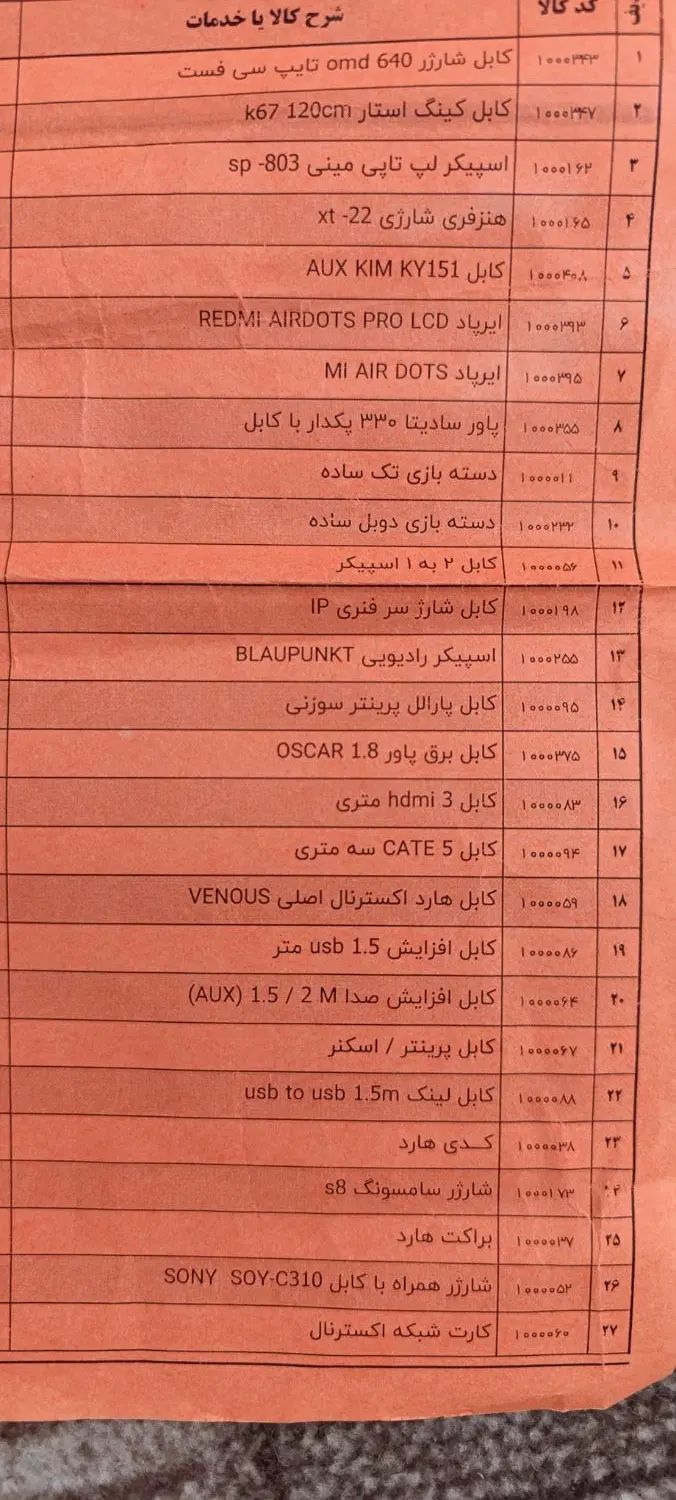 ردیف کد کالا شرح کالا یا خدمات
۱ ۱۰۰۰۳۴۳ کابل شارژر omd 640 تایپ سی فست
۲ ۱۰۰۰۳۴۷ کابل کینگ استار k67 120cm
۳ ۱۰۰۰۱۶۲ اسپیکر لپ تاپی مینی sp -803
۴ ۱۰۰۰۱۶۵ هنزفری شارژی xt -22
۵ ۱۰۰۰۴۰۸ کابل AUX KIM KY151
۶ ۱۰۰۰۳۹۳ ایرپاد REDMI AIRDOTS PRO LCD
۷ ۱۰۰۰۳۹۵ ایرپاد MI AIR DOTS
۸ ۱۰۰۰۳۵۵ پاور سادیتا ۳۳۰ پکدار با کابل
۹ ۱۰۰۰۰۱۱ دسته بازی تک ساده
۱۰ ۱۰۰۰۲۳۲ دسته بازی دوبل ساده
۱۱ ۱۰۰۰۰۵۶ کابل ۲ به ۱ اسپیکر
۱۲ ۱۰۰۰۱۹۸ کابل شارژ سر فنری IP
۱۳ ۱۰۰۰۲۵۵ اسپیکر رادیویی BLAUPUNKT
۱۴ ۱۰۰۰۰۹۵ کابل پارالل پرینتر سوزنی
۱۵ ۱۰۰۰۳۷۵ کابل برق پاور OSCAR 1.8
۱۶ ۱۰۰۰۰۸۳ کابل hdmi 3 متری
۱۷ ۱۰۰۰۰۹۴ کابل CATE 5 سه متری
۱۸ ۱۰۰۰۰۵۹ کابل هارد اکسترنال اصلی VENOUS
۱۹ ۱۰۰۰۰۸۶ کابل افزایش usb 1.5 متر
۲۰ ۱۰۰۰۰۶۴ کابل افزایش صدا 1.5 / 2 M (AUX)
۲۱ ۱۰۰۰۰۶۷ کابل پرینتر / اسکنر
۲۲ ۱۰۰۰۰۸۸ کابل لینک usb to usb 1.5m
۲۳ ۱۰۰۰۰۳۸ کـدی هارد
۲۴ ۱۰۰۰۱۷۳ شارژر سامسونگ s8
۲۵ ۱۰۰۰۰۳۷ براکت هارد
۲۶ ۱۰۰۰۰۵۲ شارژر همراه با کابل SONY SOY-C310
۲۷ ۱۰۰۰۰۶۰ کارت شبکه اکسترنال